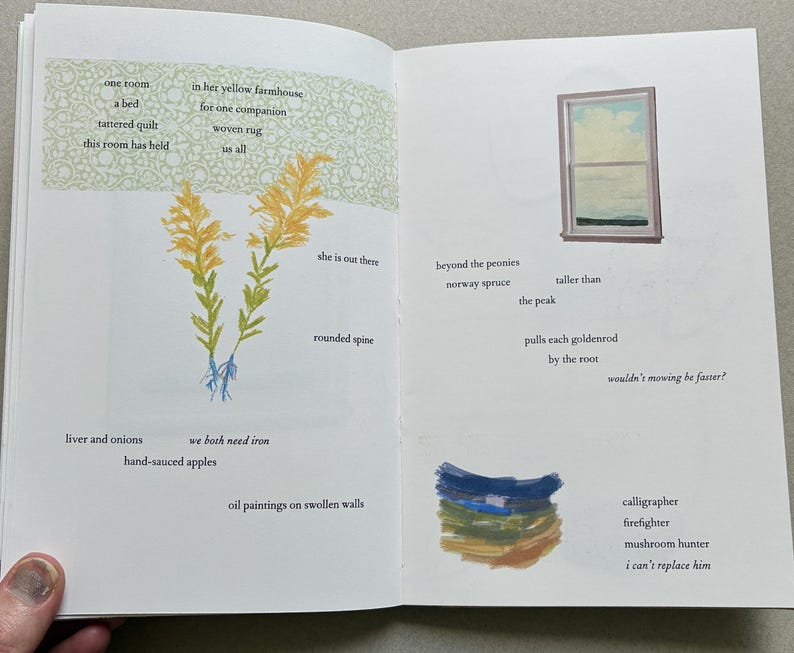 one room in her yellow farmhouse
a bed for one companion
tattered quilt woven rug
this room has held us all
she is out there
rounded spine
liver and onions we both need iron
hand-sauced apples
oil paintings on swollen walls
beyond the peonies
norway spruce taller than
the peak
pulls each goldenrod
by the root
wouldn't mowing be faster?
calligrapher
firefighter
mushroom hunter
i can't replace him